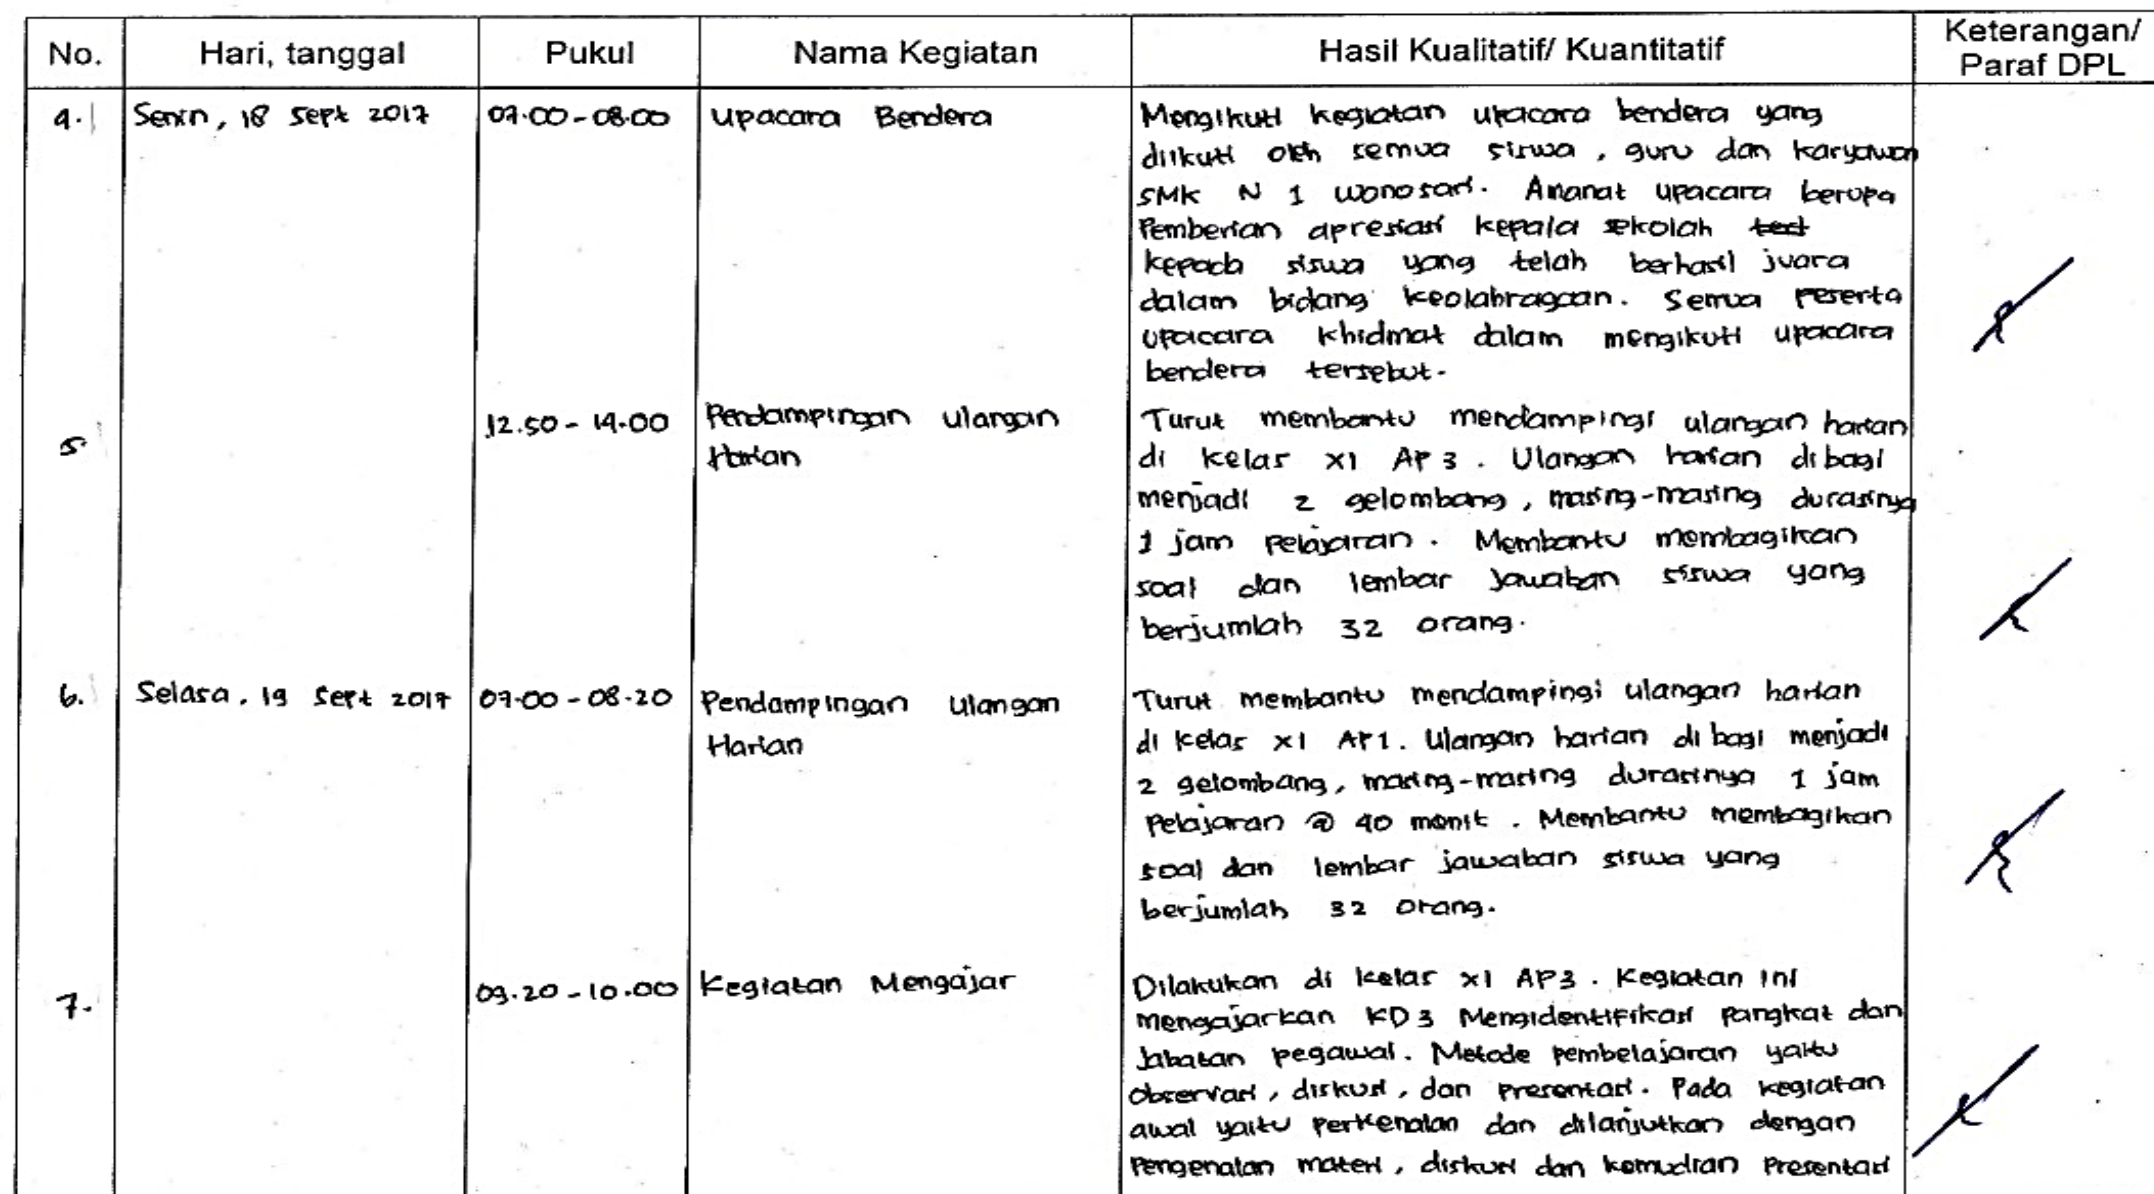 No. Hari, tanggal Pukul Nama Kegiatan Hasil Kualitatif/ Kuantitatif Keterangan/ Paraf DPL
4. Senin, 18 Sept 2017 07.00-08.00 Upacara Bendera Mengikuti kegiatan upacara bendera yang
diikuti oleh semua siswa, guru dan karyawan
SMK N 1 Wonosari. Amanat upacara berupa
Pemberian apresiasi kepala sekolah
kepada siswa yang telah berhasil juara
dalam bidang keolahragaan. Semua peserta
upacara khidmat dalam mengikuti upacara
bendera tersebut.
5 12.50 - 14.00 Pendampingan Ulangan Turut membantu mendampingi ulangan harian
Harian di kelas XI AP 3. Ulangan harian dibagi
menjadi 2 gelombang, masing-masing durasinya
1 jam pelajaran. Membantu membagikan
soal dan lembar jawaban siswa yang
berjumlah 32 orang.
6. Selasa, 19 Sept 2017 07.00-08.20 Pendampingan Ulangan Turut membantu mendampingi ulangan harian
Harian di kelas XI AP1. Ulangan harian dibagi menjadi
2 gelombang, masing-masing durasinya 1 jam
Pelajaran @ 40 menit. Membantu membagikan
soal dan lembar jawaban siswa yang
berjumlah 32 orang.
7. 09.20-10.00 Kegiatan Mengajar Dilakukan di kelas XI AP3. Kegiatan ini
mengajarkan KD3 Mengidentifikasi Pangkat dan
Jabatan pegawai. Metode pembelajaran yaitu
Observasi, diskusi, dan presentasi. Pada kegiatan
awal yaitu perkenalan dan dilanjutkan dengan
Pengenalan materi, diskusi dan kemudian Presentasi